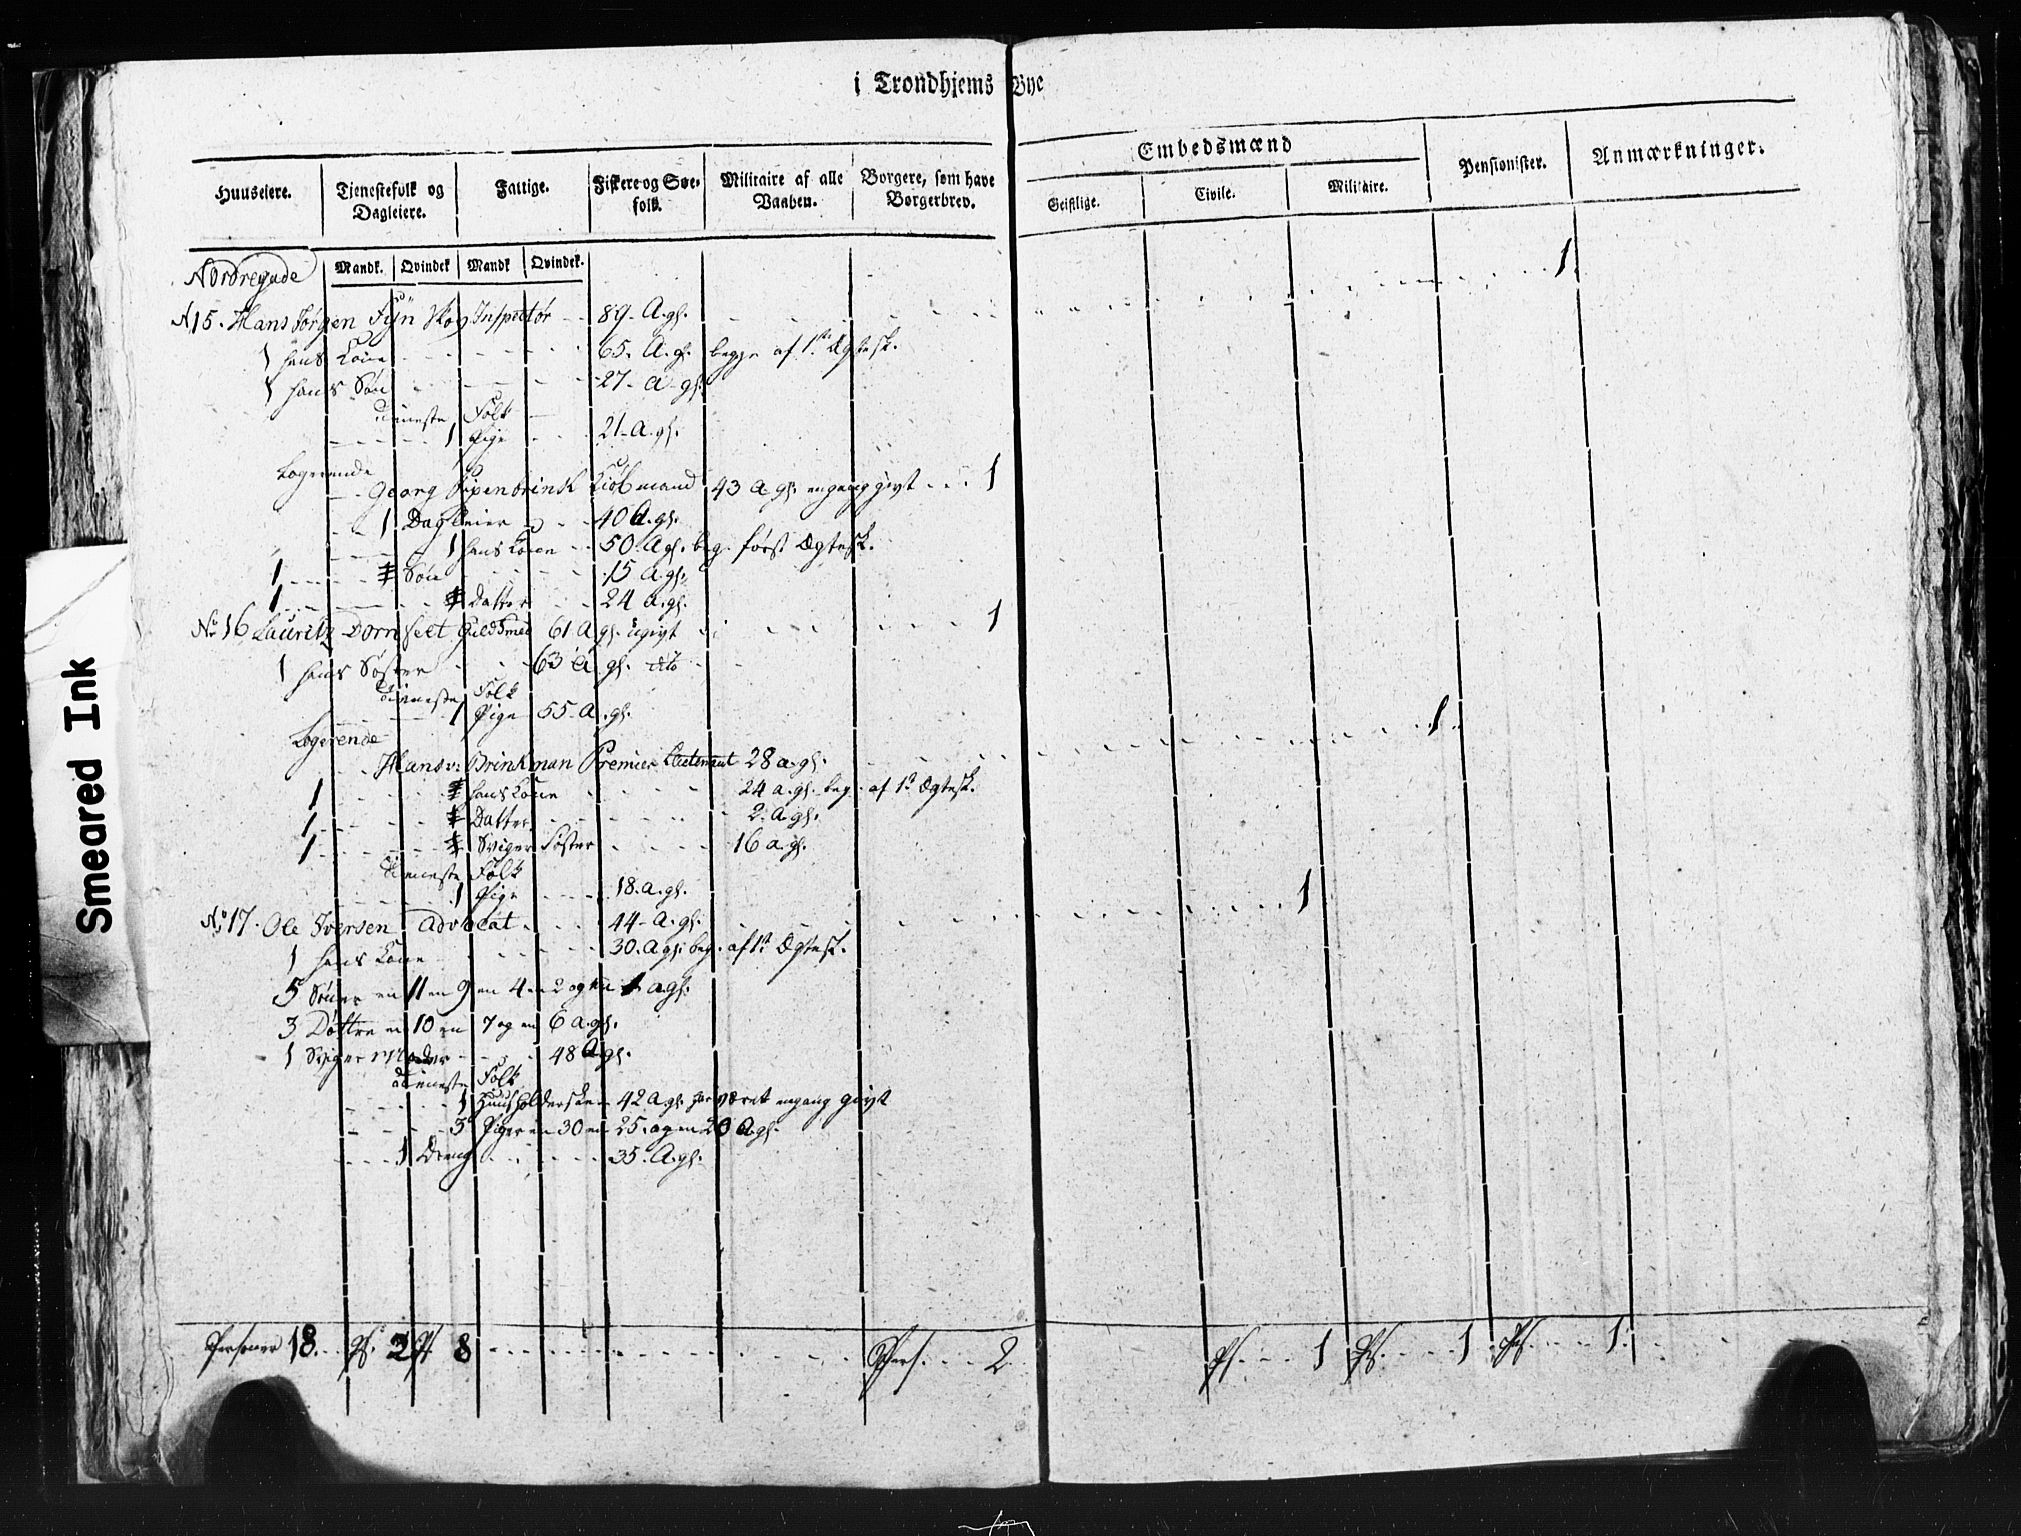 i Trondhjems Bye
Huuseiere.
Tienestefolk og Dagleiere.
Fattige.
Fiskere og Søefolk.
Militaire af alle Vaaben.
Borgere, som have Borgerbrev.
Embedsmænd
Geistlige.
Civile.
Militaire.
Pensionister.
Anmærkninger.
Mandk. Qvindek Mandk Qvindek.
Nordregade
N 15. Hans Jørgen Fÿn Skov Inspectør 89 A. gl. 1
1 hans Kone 65. A. gl. begge af 1ste Ægtesk.
1 hans Søn 27 A gl.
Tieneste Folk
1 Pige 21 A. gl.
Logerende
Georg Pipenbrinsk Kiøbmand 43 A. gl. engang givt 1
1 Dagleier 40 A. gl.
1 hans Kone 50. A gl. beg. først Ægtesk.
1 Søn 15 A. gl.
1 Datter 24 A. gl.
No 16 Lauritz Dornfelt Guldsmed 61 A gl. ugivt 1
1 hans Søster 63 A gl. dito
Tieneste Folk
1 Pige 55 A. gl.
Logerende
Hans v: Brinkman Premier Lieutenant 28 a. gl. 1
1 hans Kone 24 a. gl. beg. af 1ste Ægtesk.
1 Datter 2. A. gl.
1 Sviger Søster 16 a. gl.
Tieneste Folk
1 Pige 18. a. gl.
No 17. Ole Iversen Advocat 44 A. gl. 1
1 hans Kone 30. A gl. beg. af 1ste Ægtesk.
5 Sønner en 11 en 9 en 4 en 2 og en 1 a gl.
3 Døttre en 10 en 7 og en 6 a. gl.
1 Sviger Moder 48 A gl.
Tieneste Folk
1 Huusholderske 42 A. gl. har været engang givt
3 Piger en 30 en 25. og en 20 A gl.
1 Dreng 35. A. gl.
Personer 18. Ps. 2 Ps 8 Pers. 2 Ps. 1 Ps. 1 Ps. 1
Smeared Ink